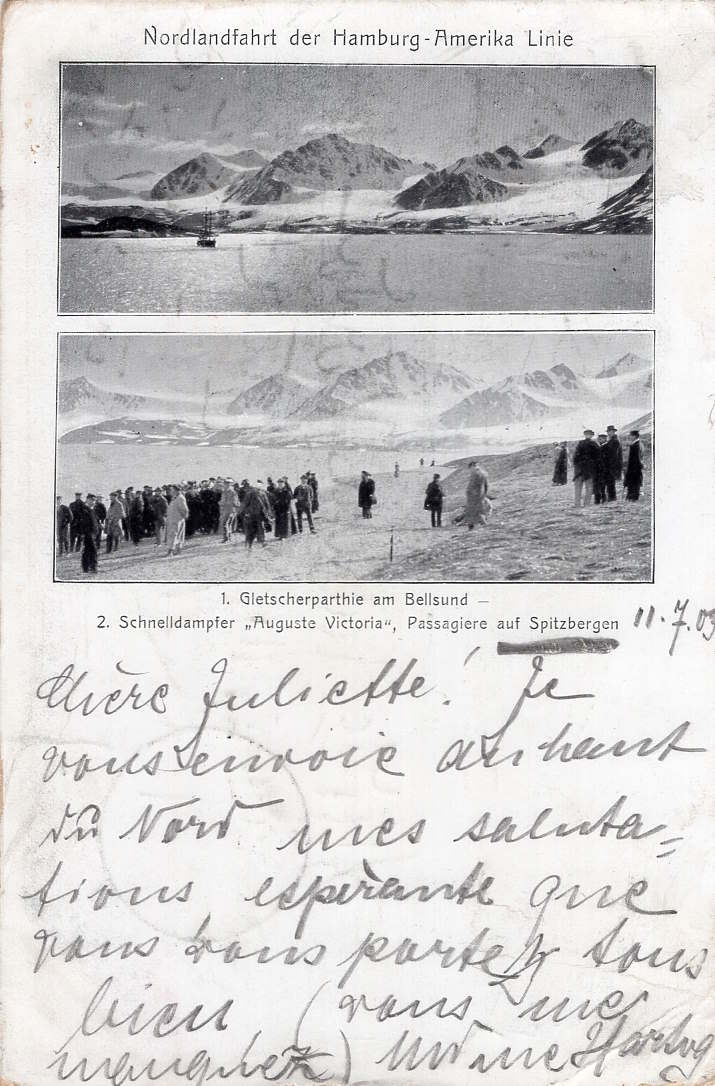 Nordlandfahrt der Hamburg-Amerika Linie
1. Gletscherparthie am Bellsund –
2. Schnelldampfer „Auguste Victoria“, Passagiere auf Spitzbergen 11.7.03
Chère Juliette! Je
vous envoie du haut
du Nord mes saluta=
tions, espèrante que
vous vous portez tous
bien, (vous me
manquez) Mme Hartog